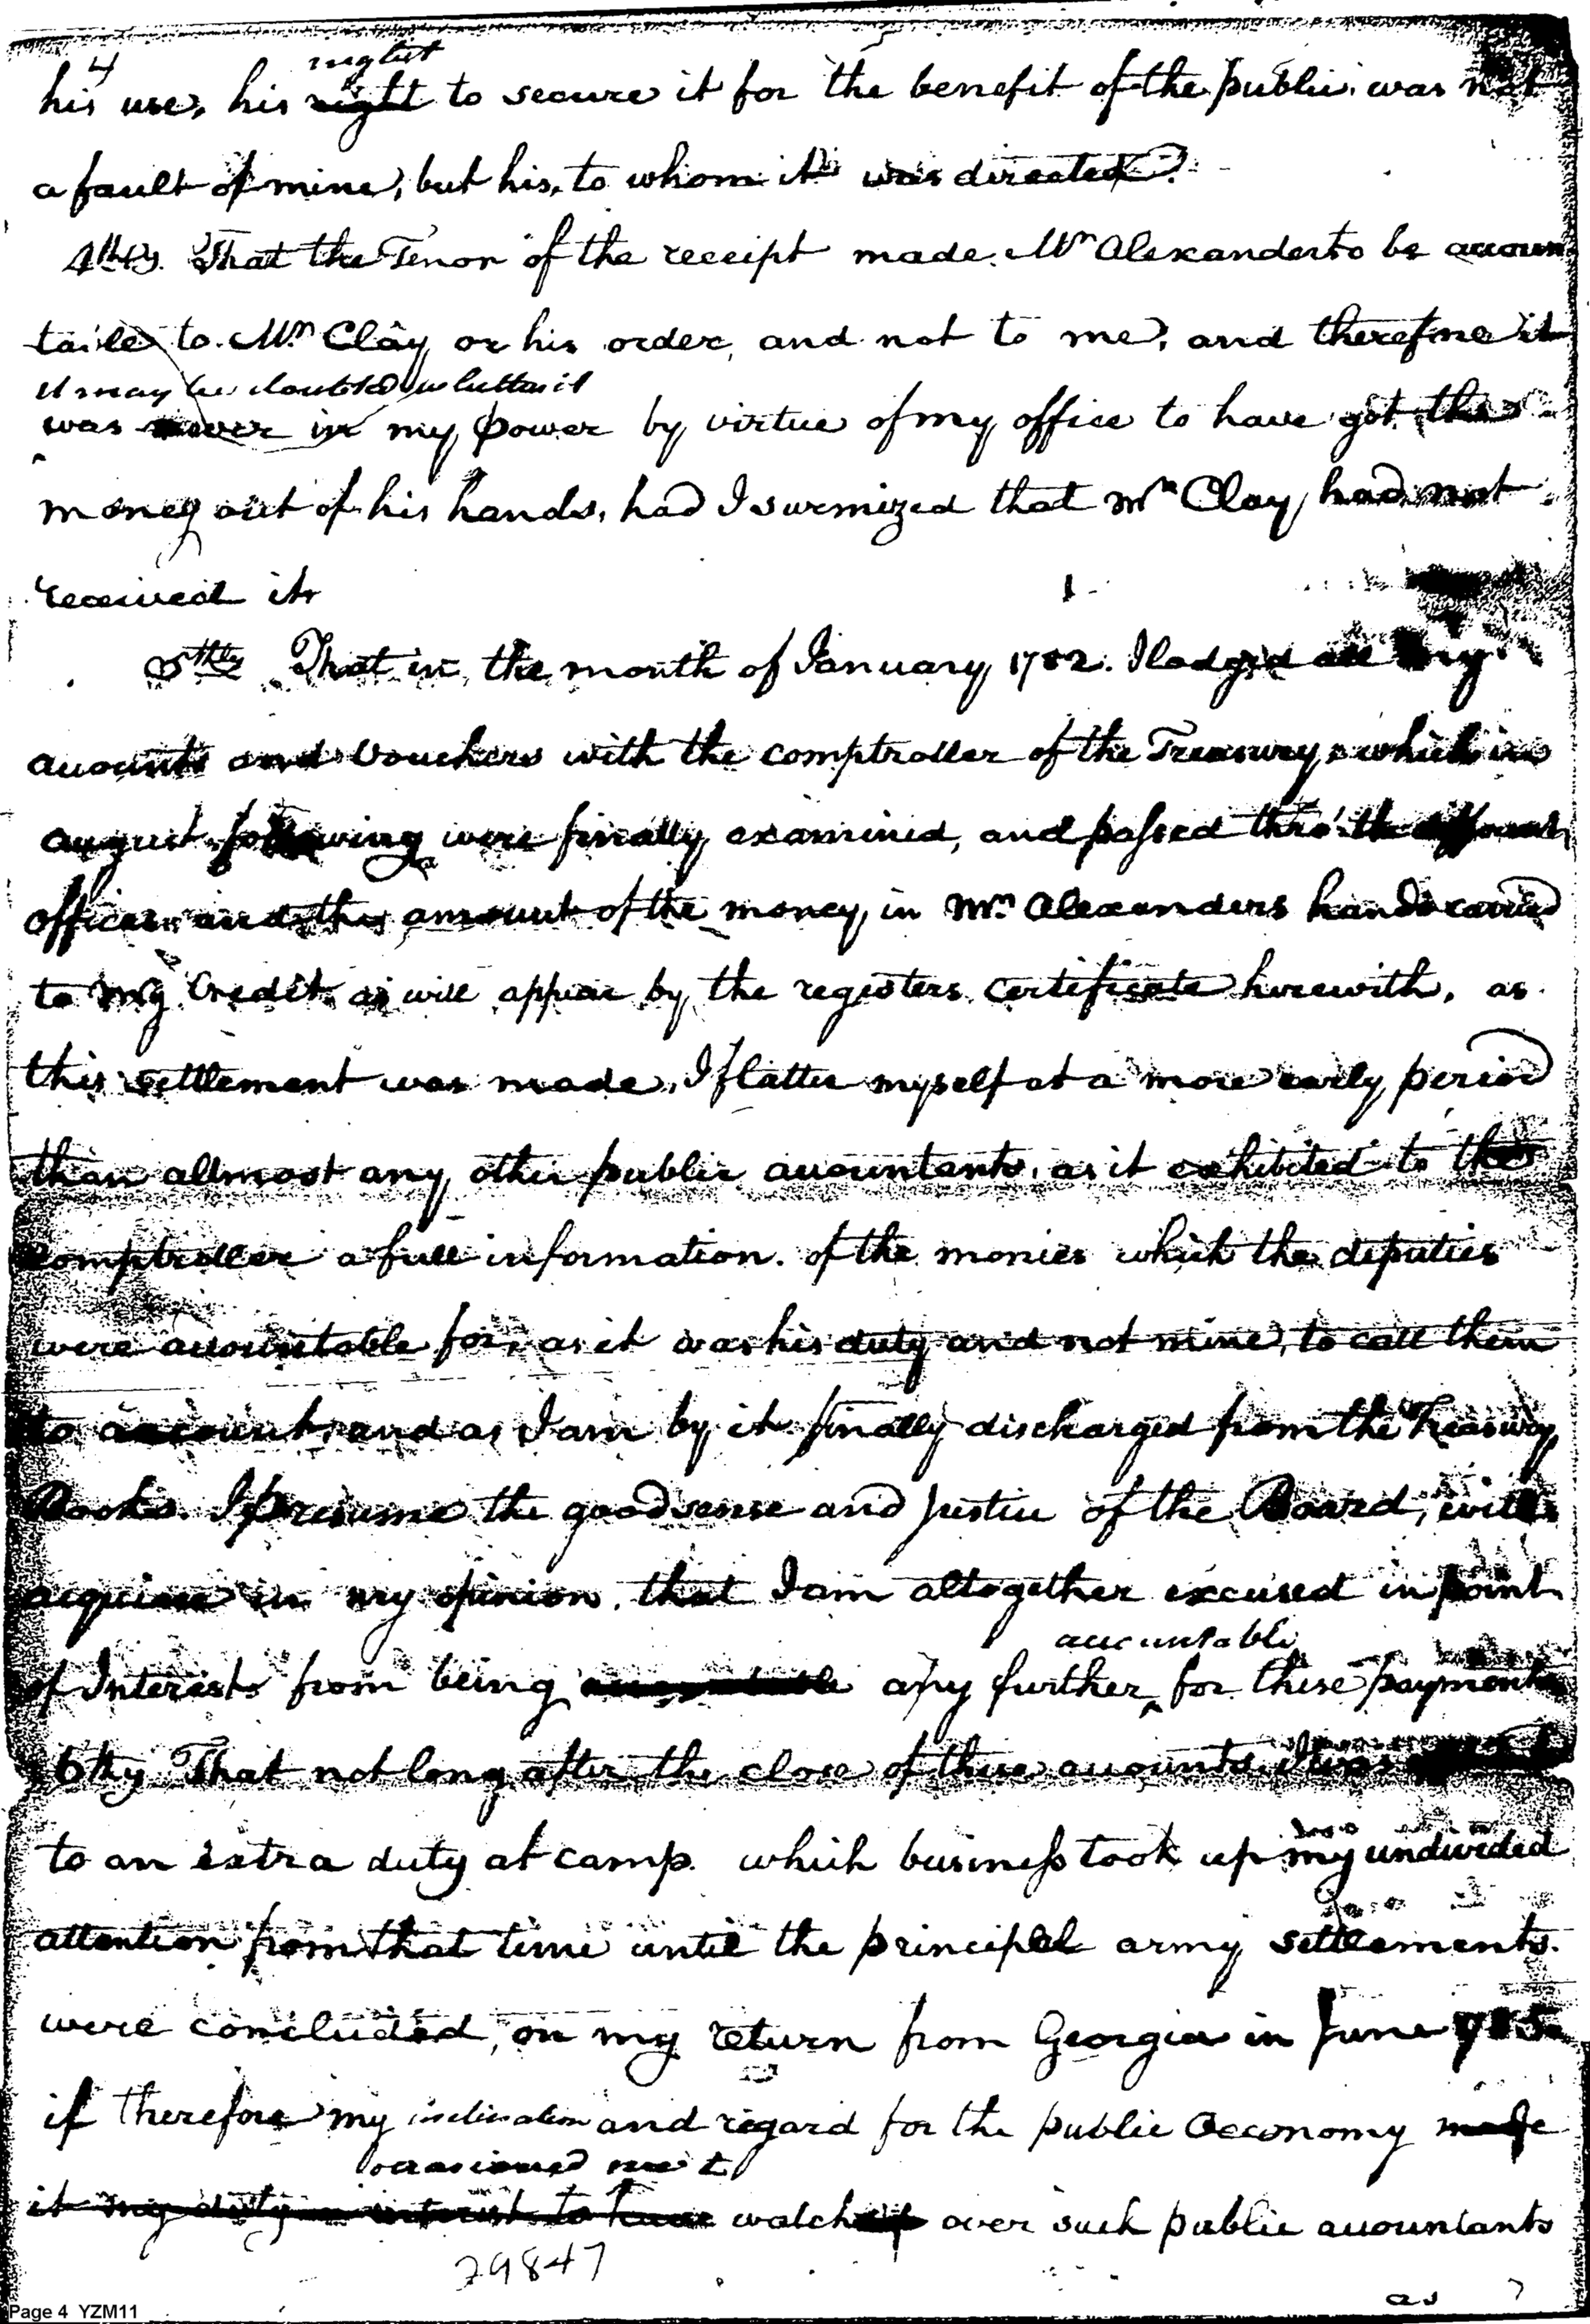 4
neglect
his use, his right to secure it for the benefit of the public was not
a fault of mine, but his, to whom it was directed.
4thly. That the Tenor of the receipt made Mr Alexander to be accoun
table to Mr Clay or his order, and not to me, and therefore it
it may be doubted whether it
was never in my power by virtue of my office to have got the
money out of his hands, had I surmized that Mr Clay had not
received it
5thly That in the month of January 1782. I lodged all my
accounts and Vouchers with the comptroller of the Treasury, which in
august following were finally examined, and passed thro' the different
offices and the amount of the money in Mr Alexanders hands carried
to my Credit, as will appear by the registers certificate herewith, as
this settlement was made, I flatter myself at a more early period
than allmost any other public accountants, as it exhibited to the
Comptroller a full information of the monies which the deputies
were accountable for, as it was his duty and not mine, to call them
to account, and as I am by it finally discharged from the Treasury
Books. I presume the good sense and Justice of the Board, will
acquiese in my opinion, that I am altogether excused in point
accountable
of Interest from being accountable any further for these payments
6thly That not long after the close of these accounts I was
to an extra duty at camp. which business took up my undivided
attention from that time until the principal army settlements
were concluded, on my return from Georgia in June 1785
if therefore my inclination and regard for the public Oeconomy made
occasioned me to
it my duty or interest to have watched over such public accountants
29847
as
Page 4 YZM11